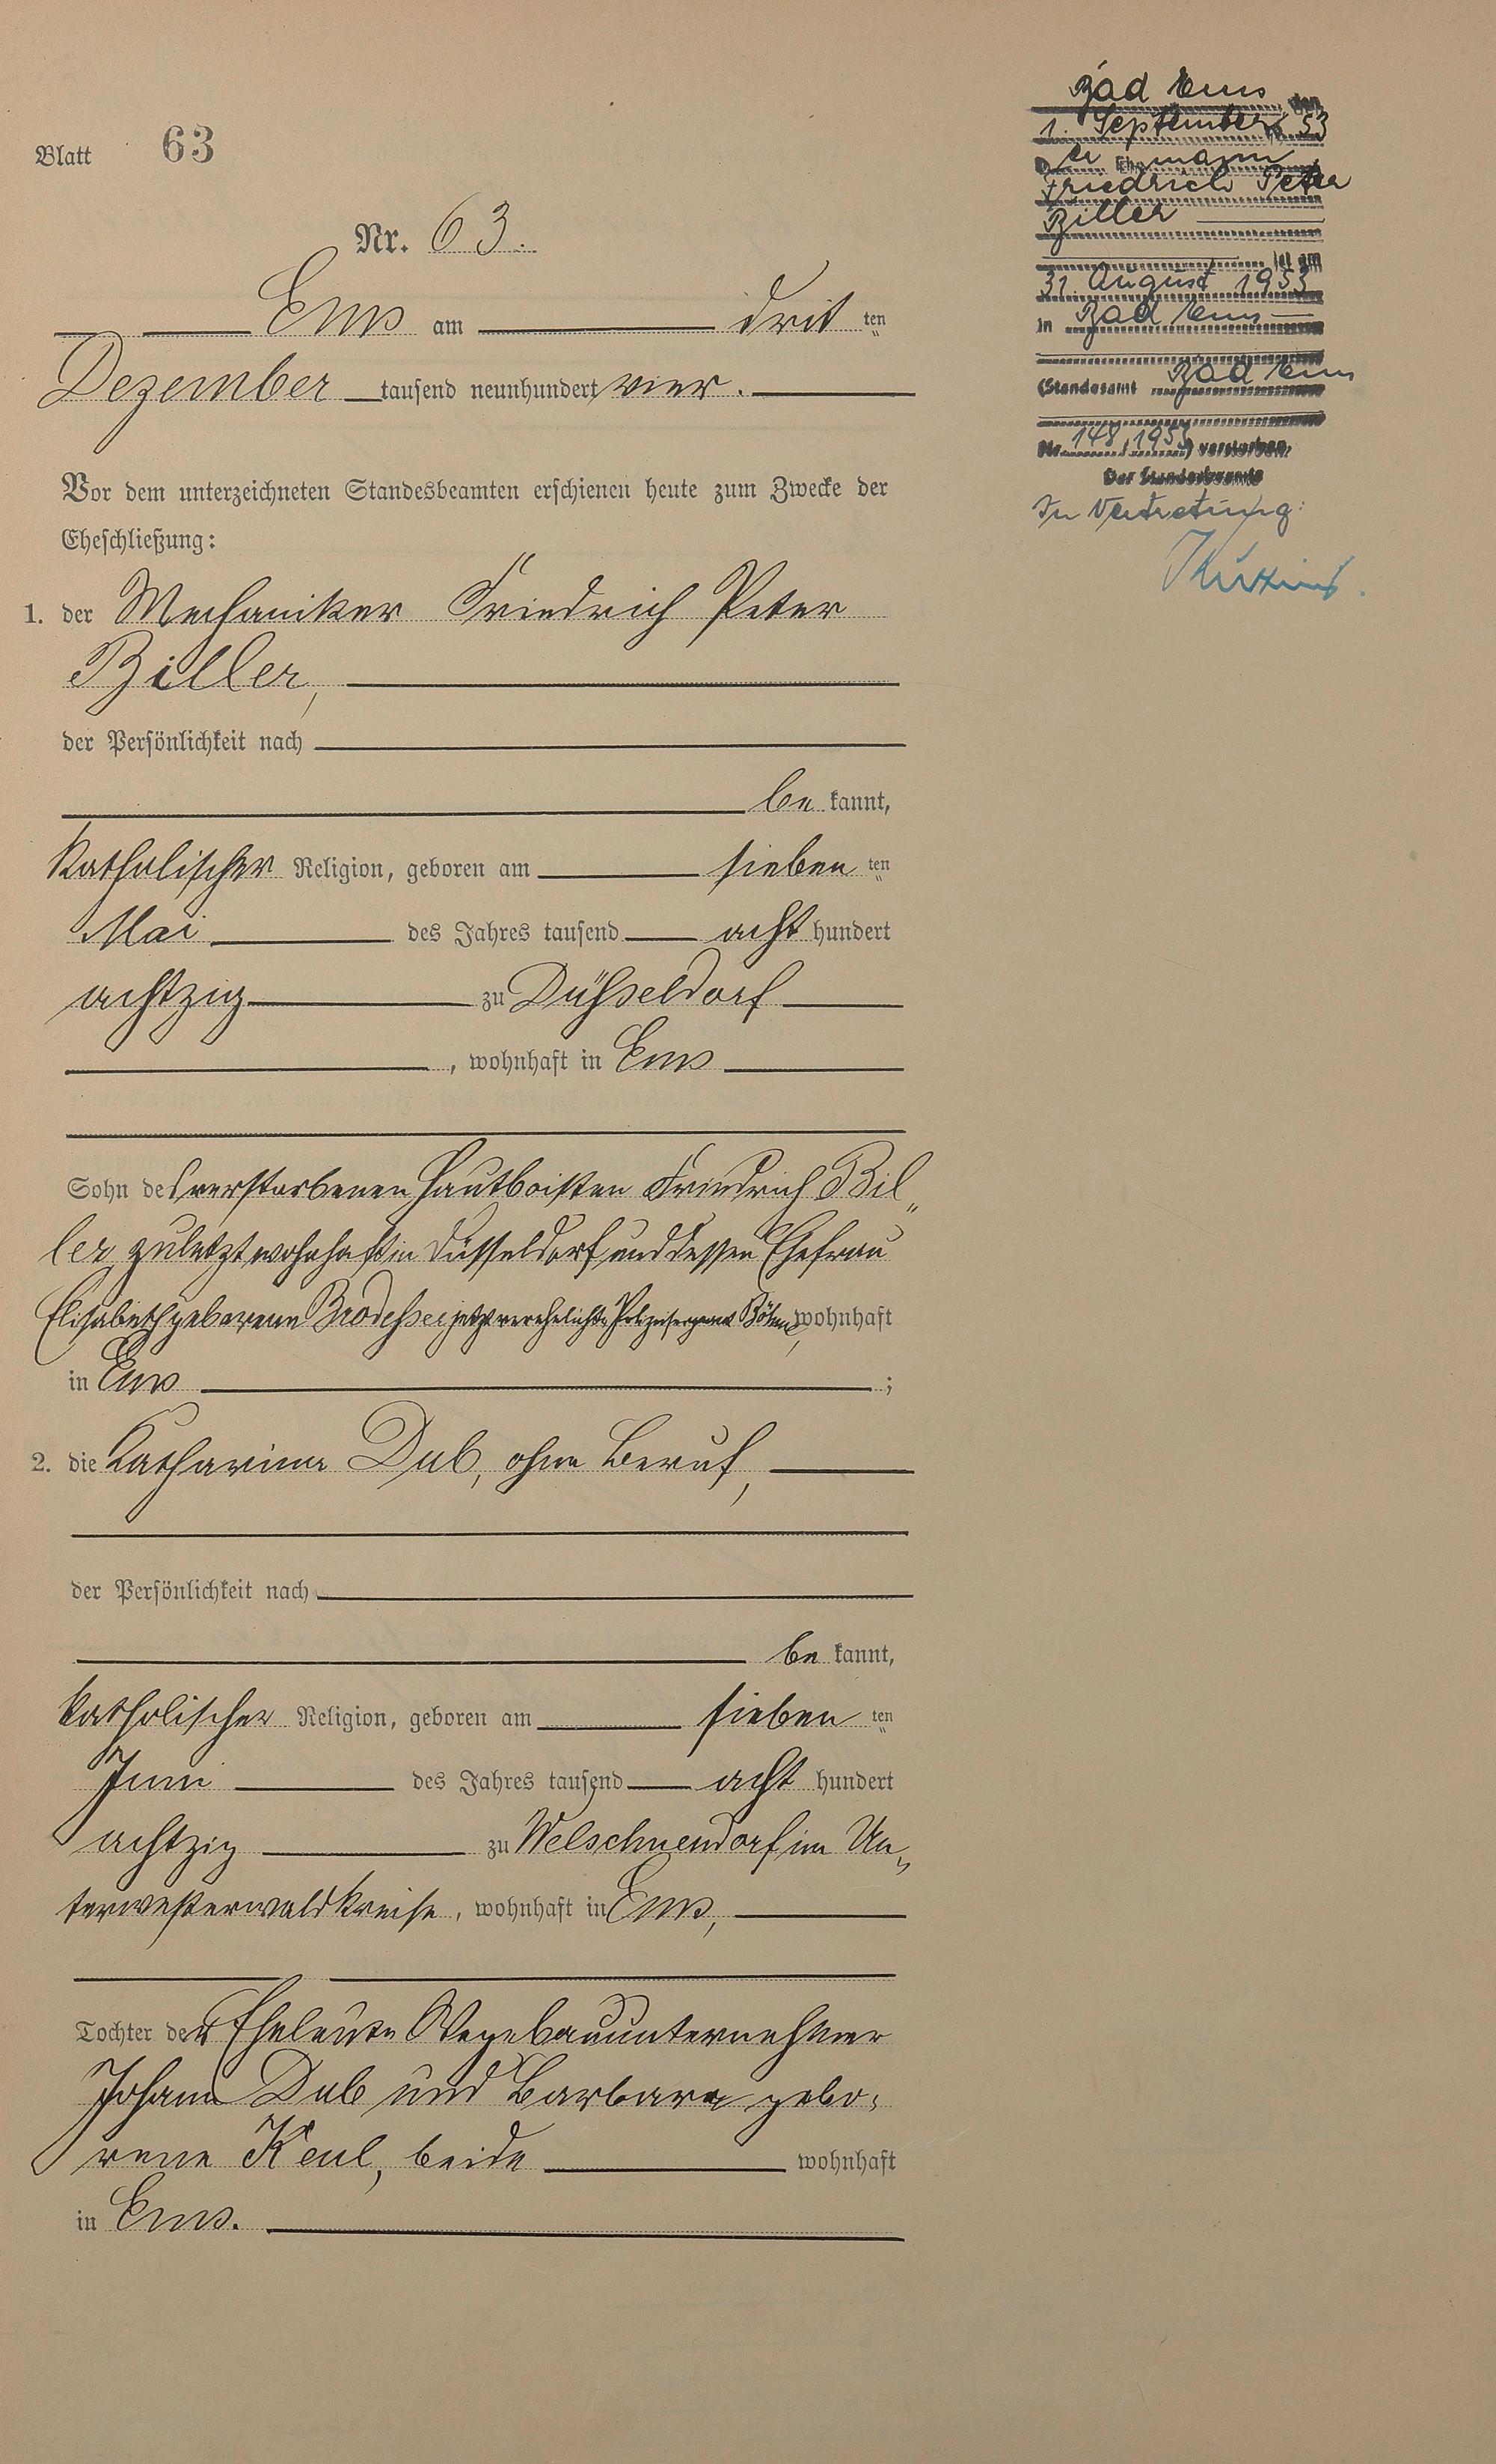 Blatt 63
Nr. 63.
Ems am drit ten
Dezember tausend neunhundert vier.
Vor dem unterzeichneten Standesbeamten erschienen heute zum Zwecke der
Eheschließung:
1. der Mechaniker Friedrich Peter
Biller,
der Persönlichkeit nach
be kannt,
katholischer Religion, geboren am sieben ten
Mai des Jahres tausend acht hundert
achtzig zu Düsseldorf
, wohnhaft in Ems
Sohn des verstorbenen Hautboisten Friedrich Bil„
ler, zuletzt wohnhaft in Düsseldorf und dessen Ehefrau
Elisabeth geborene Brodesser jetzt verehelichte Polizeisergeant wohnhaft
in Ems ;
2. die Katharina Dub, ohne Beruf,
der Persönlichkeit nach
be kannt,
katholischer Religion, geboren am sieben ten
Juni des Jahres tausend acht hundert
achtzig zu Welschneudorf im Un„
terwesterwaldkreise, wohnhaft in Ems,
Tochter der Eheleute Wegebauunternehmer
Johann Dub und Barbara gebo„
rene Keul, beide wohnhaft
in Ems.
Bad Ems, den
1. September 53
Der Ehemann
Friedrich Peter
Biller
ist am
31. August 1953
in Bad Ems
(Standesamt Bad Ems
Nr. 148/1953) verstorben.
Der Standesbeamte
In Vertretung: